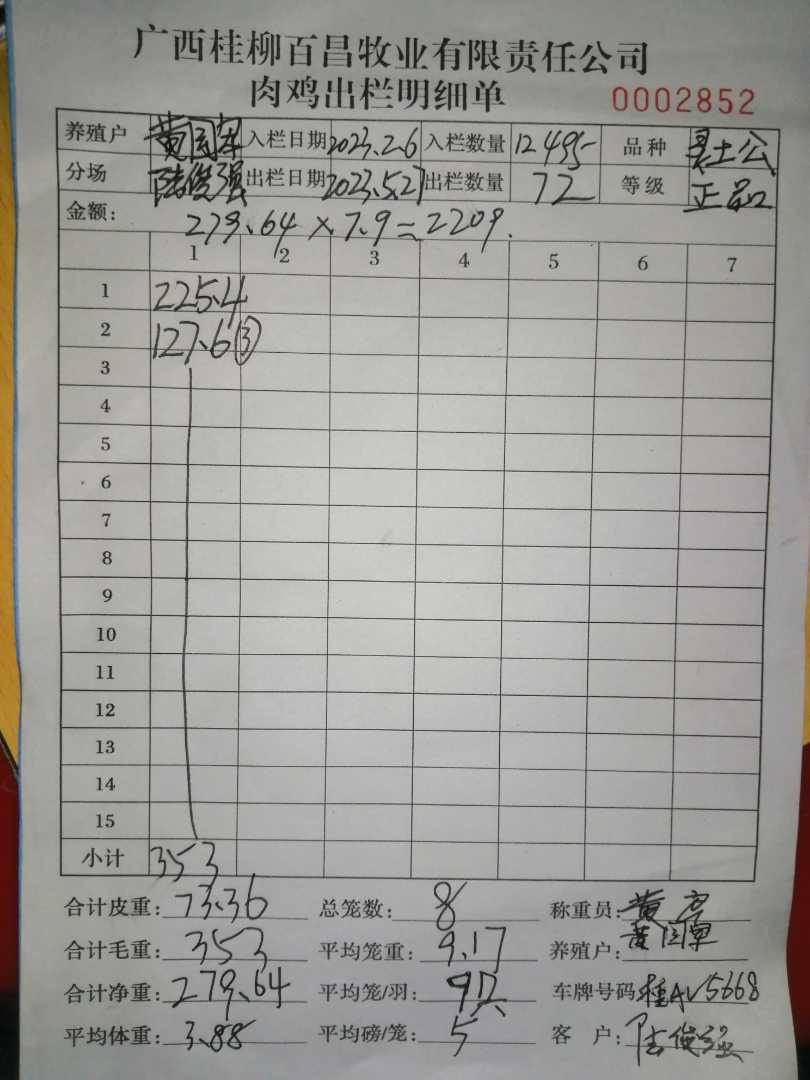 广西桂柳百昌牧业有限责任公司
肉鸡出栏明细单 0002852
养殖户 黄国军 入栏日期 2023.2.6 入栏数量 12495 品种 灵土公
分场 陆俊强 出栏日期 2023.5.27 出栏数量 72 等级 正品
金额: 279.64×7.9=2209.
1 2 3 4 5 6 7
1 225.4
2 127.6③
3
4
5
6
7
8
9
10
11
12
13
14
15
小计 353
合计皮重: 73.36 总笼数: 8 称重员: 黄
合计毛重: 353 平均笼重: 9.17 养殖户: 黄国军
合计净重: 279.64 平均笼/羽: 9只 车牌号码: 桂AV5668
平均体重: 3.88 平均磅/笼: 5 客户: 陆俊强